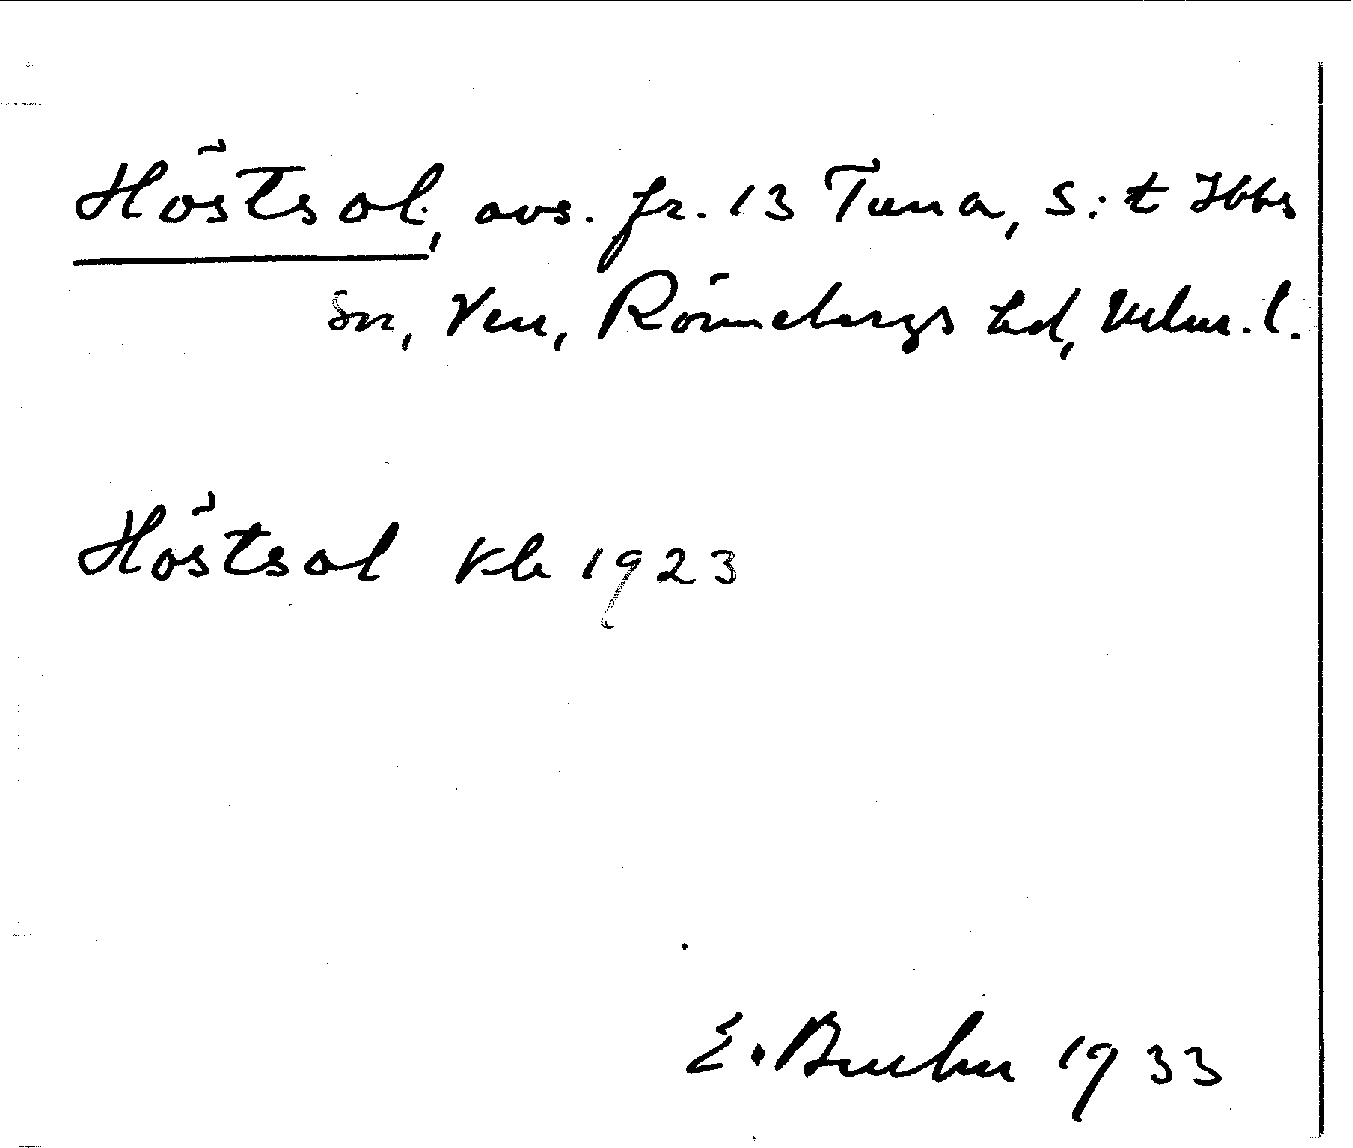 Höstsol, avs. fr. 13 Tuna, S:t Ibbs
sn, Ven, Rönnebergs hd, Mlm.l.
Höstsol Kb 1923
E. 1933